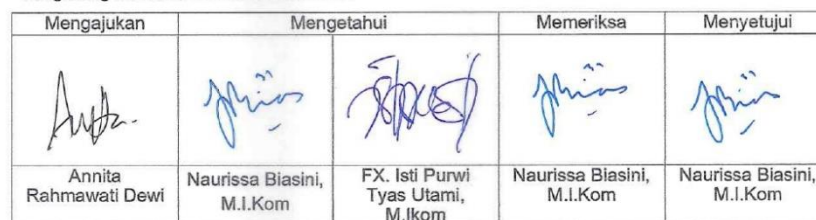 Mengajukan Mengetahui Memeriksa Menyetujui
Annita
Rahmawati Dewi
Naurissa Biasini,
M.I.Kom
FX. Isti Purwi
Tyas Utami,
M.Ikom
Naurissa Biasini,
M.I.Kom
Naurissa Biasini,
M.I.Kom